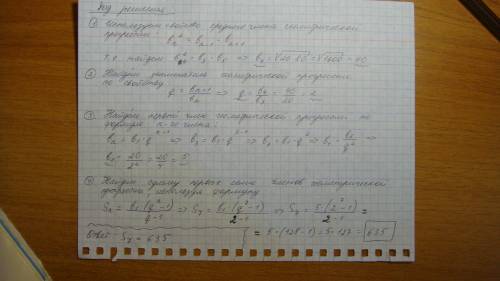 Ход решения
① Используем свойство среднего члена геометрической
прогрессии b²ₙ = bₙ₋₁ · bₙ₊₁
т.е. найдём b₄² = b₃ · b₅ ⇒ b₄ = √20·80 = √1600 = 40
② Найдём знаменатель геометрической прогрессии
по свойству
q = bₙ₊₁/bₙ ⇒ q = b₄/b₃ = 40/20 = 2
③ Найдём первый член геометрической прогрессии по
формуле n-го члена:
bₙ = b₁ · qⁿ⁻¹ ⇒ b₃ = b₁ · q³⁻¹ ⇒ b₃ = b₁ · q² ⇒ b₁ = b₃/q² ⇒
b₁ = 20/2² = 20/4 = 5
④ Найдём сумму первых семи членов геометрической
прогрессии, используя формулу
Sₙ = b₁·(qⁿ-1)/q-1 ⇒ S₇ = b₁·(q⁷-1)/2-1 ⇒ S₇ = 5·(2⁷-1)/2-1 =
= 5·(128-1) = 5·127 = 635
Ответ: S₇ = 635